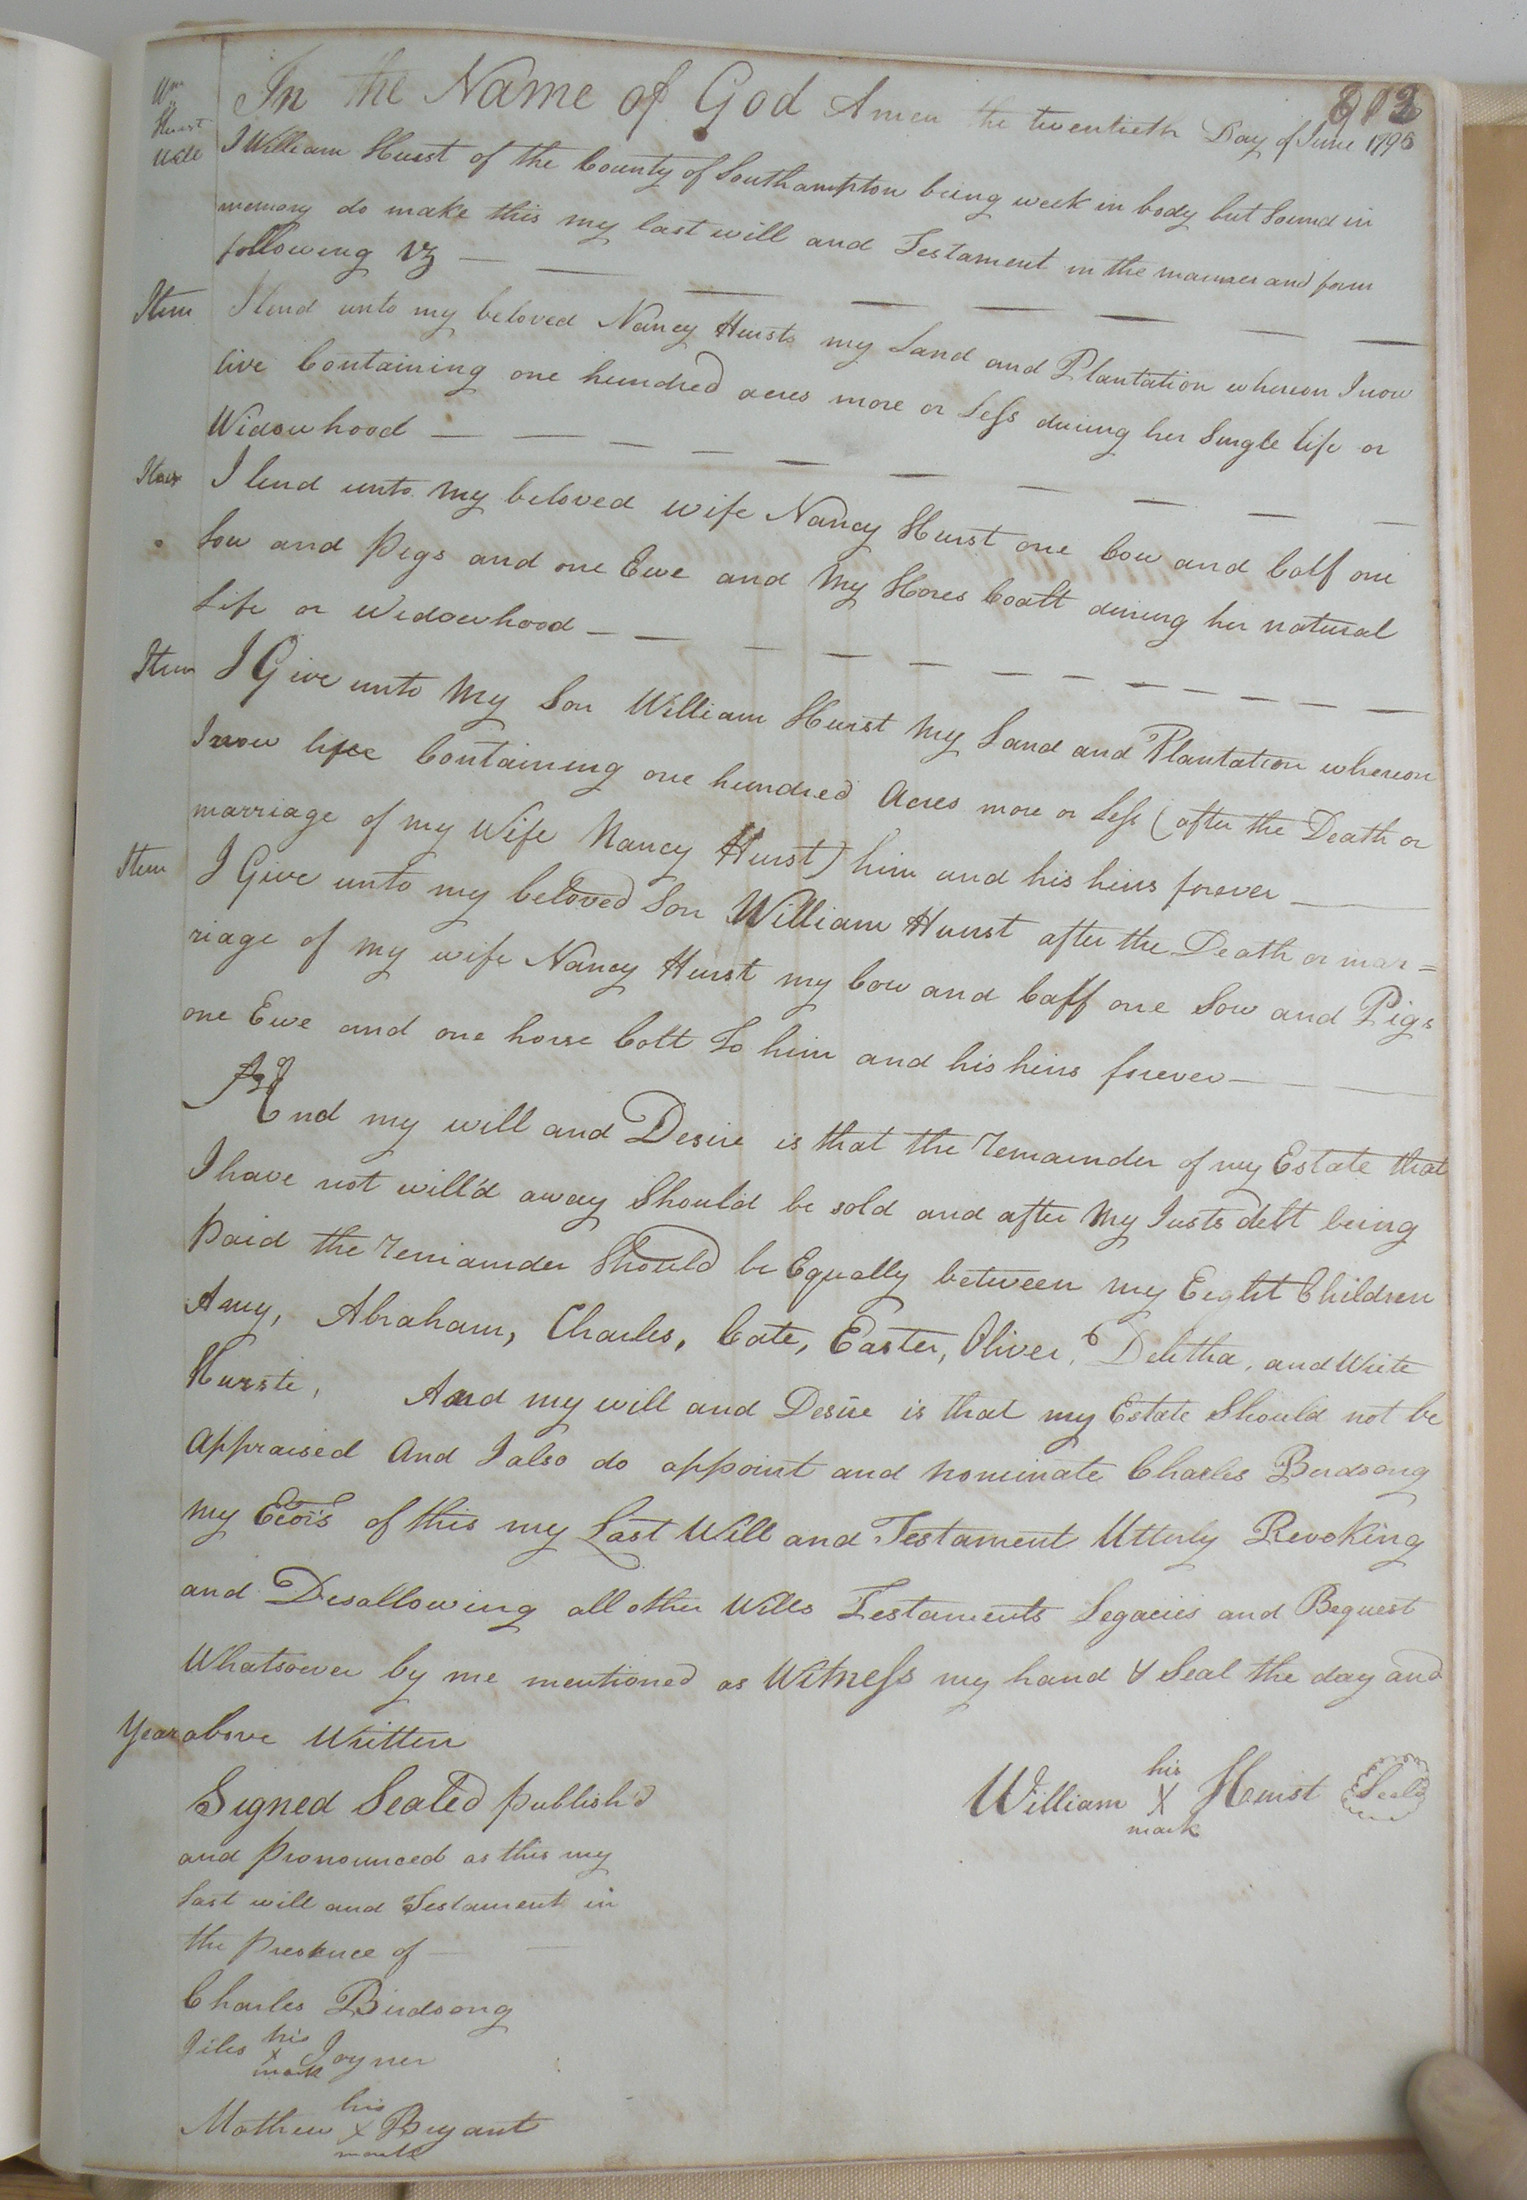 Wm Hurst Will
In the Name of God Amen the twentieth Day of June 1795
I William Hurst of the County of Southampton being week in body but Sound in
memory do make this my last will and Testament in the manner and form
following Vz
Item I lend unto my beloved Nancy Hursts my Land and Plantation whereon I now
live Containing one hundred acres more or Less during her Single life or
Widowhood
Item I lend unto my beloved wife Nancy Hurst one Cow and Calf one
Sow and Pigs and one Ewe and My Hores Coalt during her natural
Life or Widowhood
Item I Give unto My Son William Hurst My Land and Plantation whereon
I now live Containing one hundred Acres more or Less (after the Death or
marriage of my Wife Nancy Hurst) him and his heirs forever
Item I Give unto my beloved Son William Hurst after the Death or mar=
riage of my wife Nancy Hurst my Cow and Caff one Sow and Pigs
one Ewe and one horse Colt To him and his heirs forever
And my will and Desire is that the remainder of my Estate that
I have not will'd away Should be sold and after My Justs debt being
Paid the remainder Should be Equally between my Eight Children
Amy, Abraham, Charles, Cate, Easter, Oliver, Delitha, and Wiete
Hurste, And my will and Desire is that my Estate Should not be
Appraised And I also do appoint and nominate Charles Birdsong
my Ecors of this my Last Will and Testament Utterly Revoking
and Desallowing all other Wills Testaments Legacies and Bequest
Whatsoever by me mentioned as Witness my hand & Seal the day and
Year above Written
William his X mark Hurst Seal
Signed Sealed publish'd
and pronounced as this my
last will and Testament in
the Presence of
Charles Birdsong
Jiles his X mark Joyner
Mathew his X mark Bryant